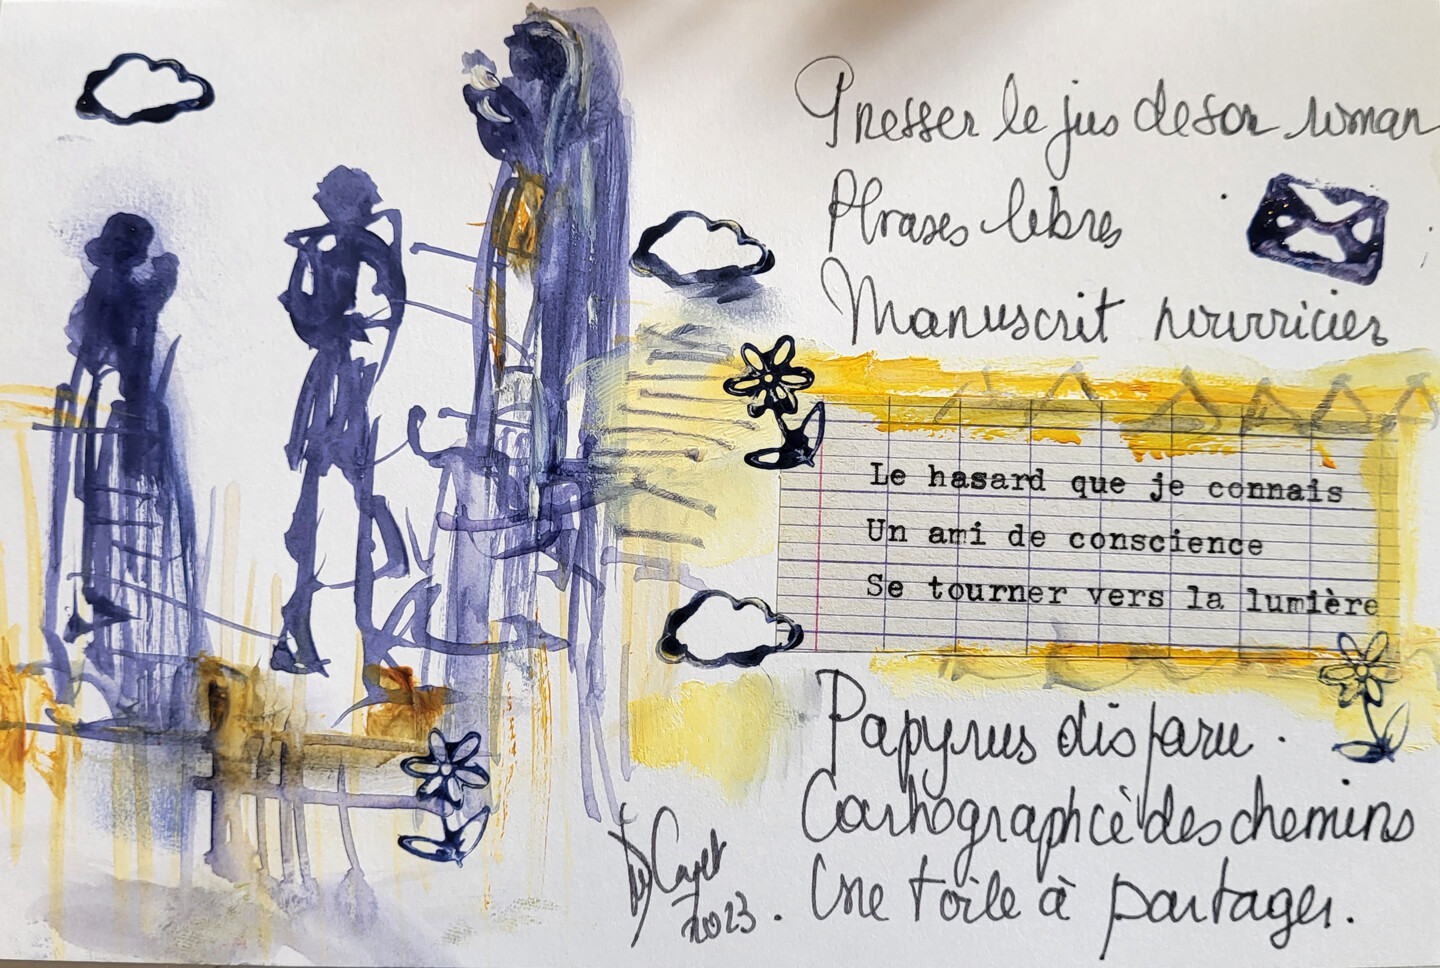 Presser le jus de son roman
Phrases libres
Manuscrit nourricier
Le hasard que je connais
Un ami de conscience
Se tourner vers la lumière
Papyrus disparu.
Cartographie des chemins
Une toile à partager.
Cayet
2023.